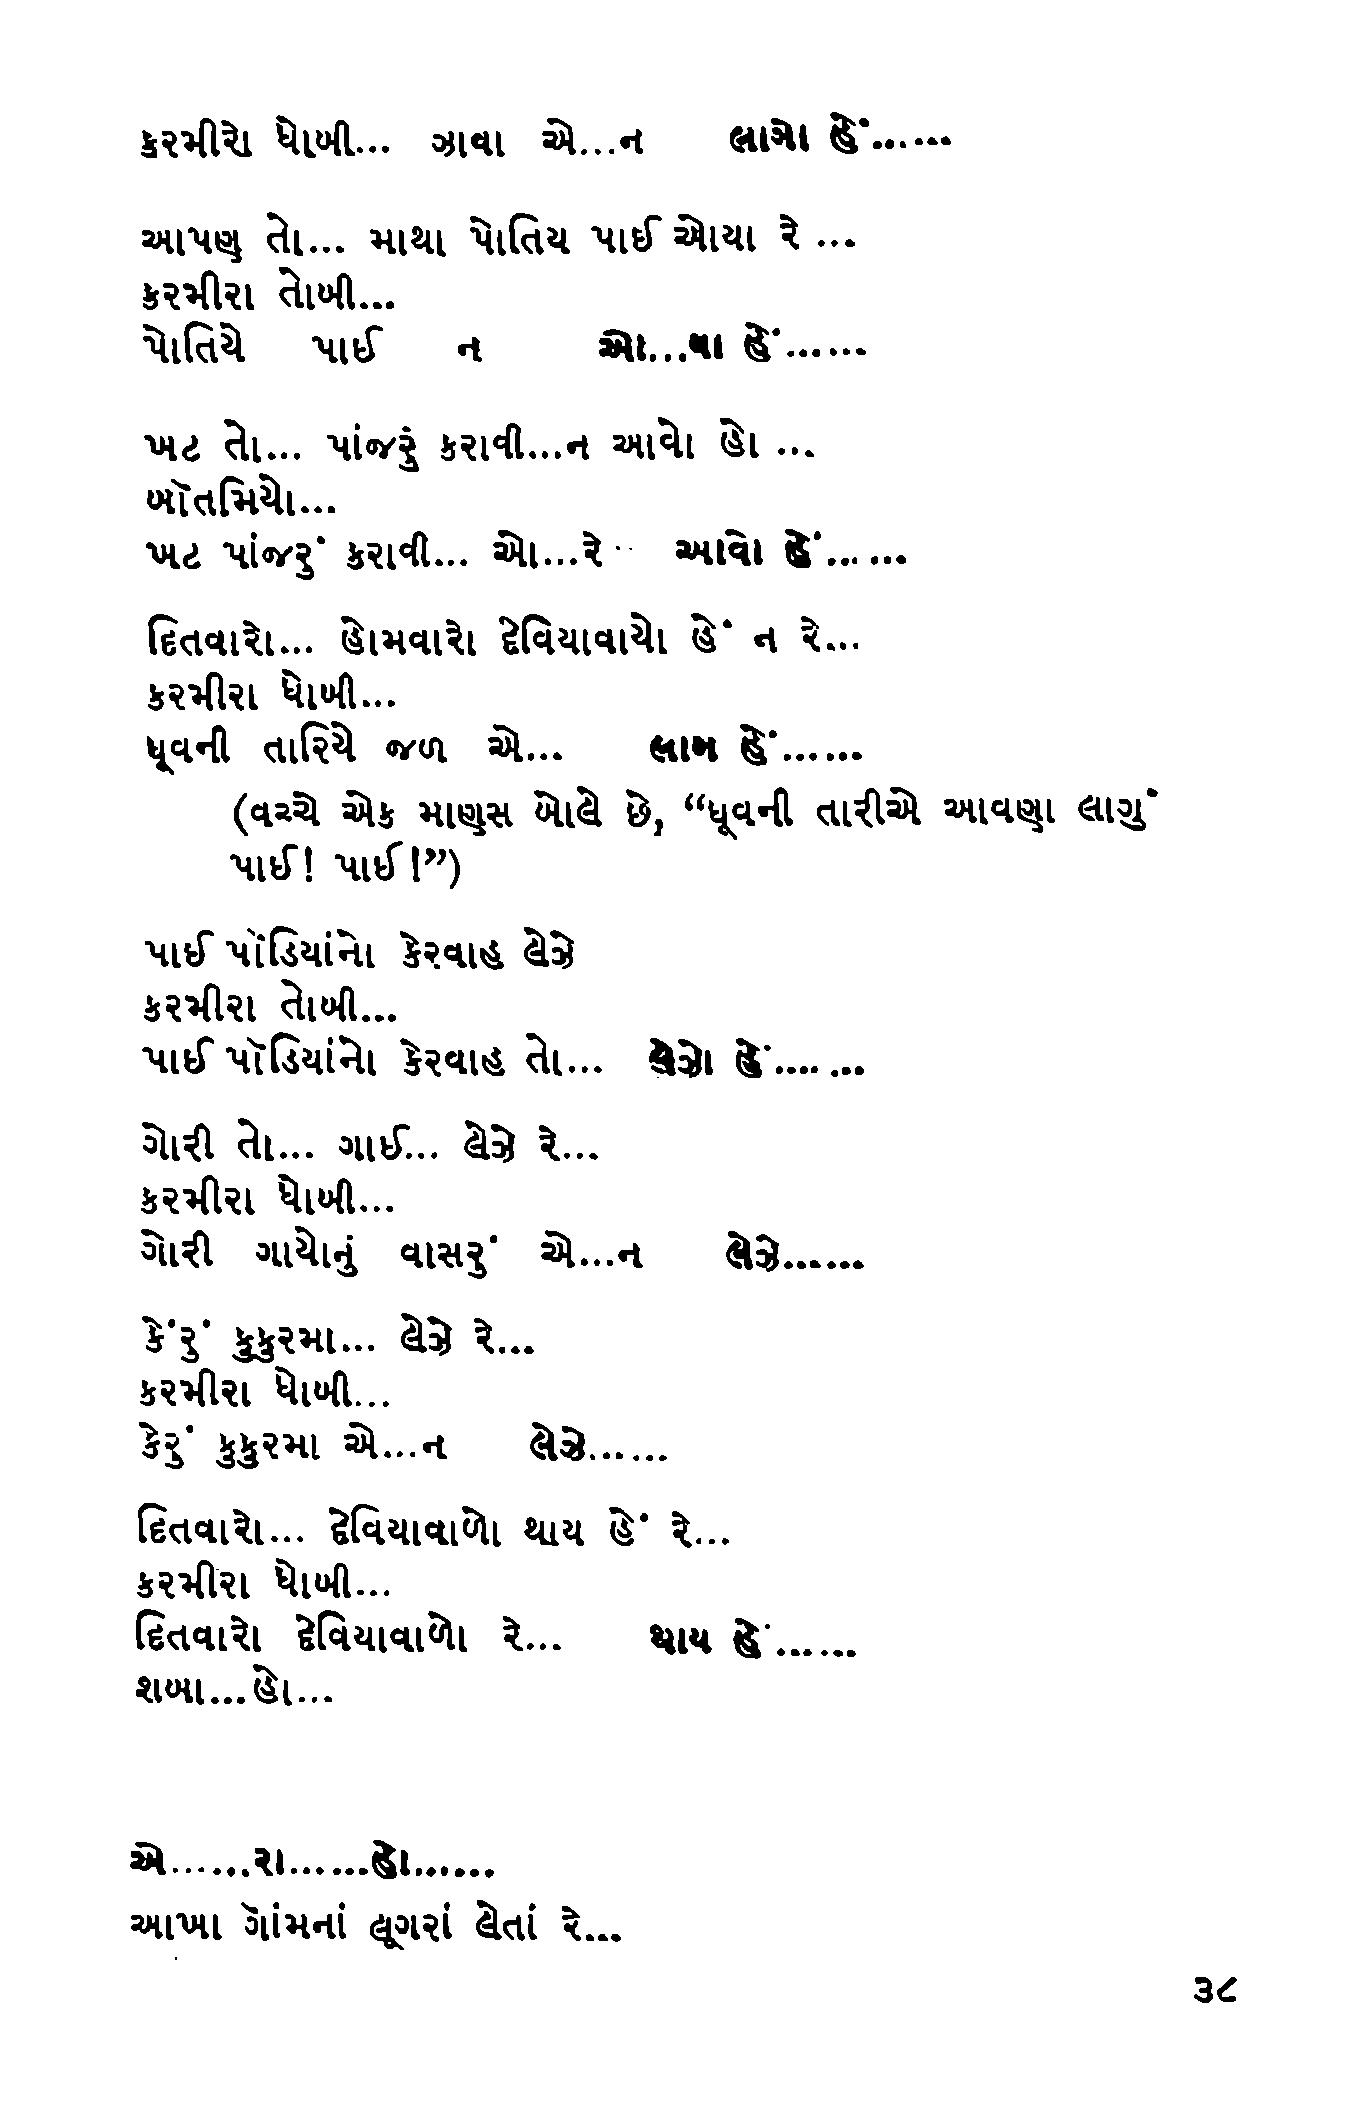 કરમીરો ધોબી... ઝાવા એ...ન લાગો હેં......
આપણ તો... માથા પોતિય પાઈ ઓયા રે ...
કરમીરા તોબી...
પોતિયે પાઈ ન ઓ...યા હેં......
ખટ તો... પાંજરું કરાવી...ન આવો હો ...
બૉતમિયો...
ખટ પાંજરું કરાવી... ઓ...રે આવો હેં......
દિતવારો... હોમવારો દેવિયાવાયો હેં ન રે...
કરમીરા ધોબી...
ધૂવની તારિયે જળ એ... લાખ હેં......
(વચ્ચે એક માણસ બોલે છે, “ધૂવની તારીએ આવણા લાગું
પાઈ! પાઈ!”)
પાઈ પૉડિયાંનો કેરવાહ લેઝે
કરમીરા તોબી...
પાઈ પૉડિયાંનો કેરવાહ તો... લેઝો હેં.......
ગોરી તો... ગાઈ... લેઝે રે...
કરમીરા ધોબી...
ગોરી ગાયોનું વાસરું એ...ન લેઝે......
કેંરું કુકુરમા... લેઝે રે...
કરમીરા ધોબી...
કેરું કુકુરમા એ...ન લેઝે......
દિતવારો... દેવિયાવાળો થાય હેં રે...
કરમીરા ધોબી...
દિતવારો દેવિયાવાળો રે... થાય હેં......
શબા...હો...
એ......રા......હો......
આખા ગૉંમનાં લૂગરાં લેતાં રે...
૩૮